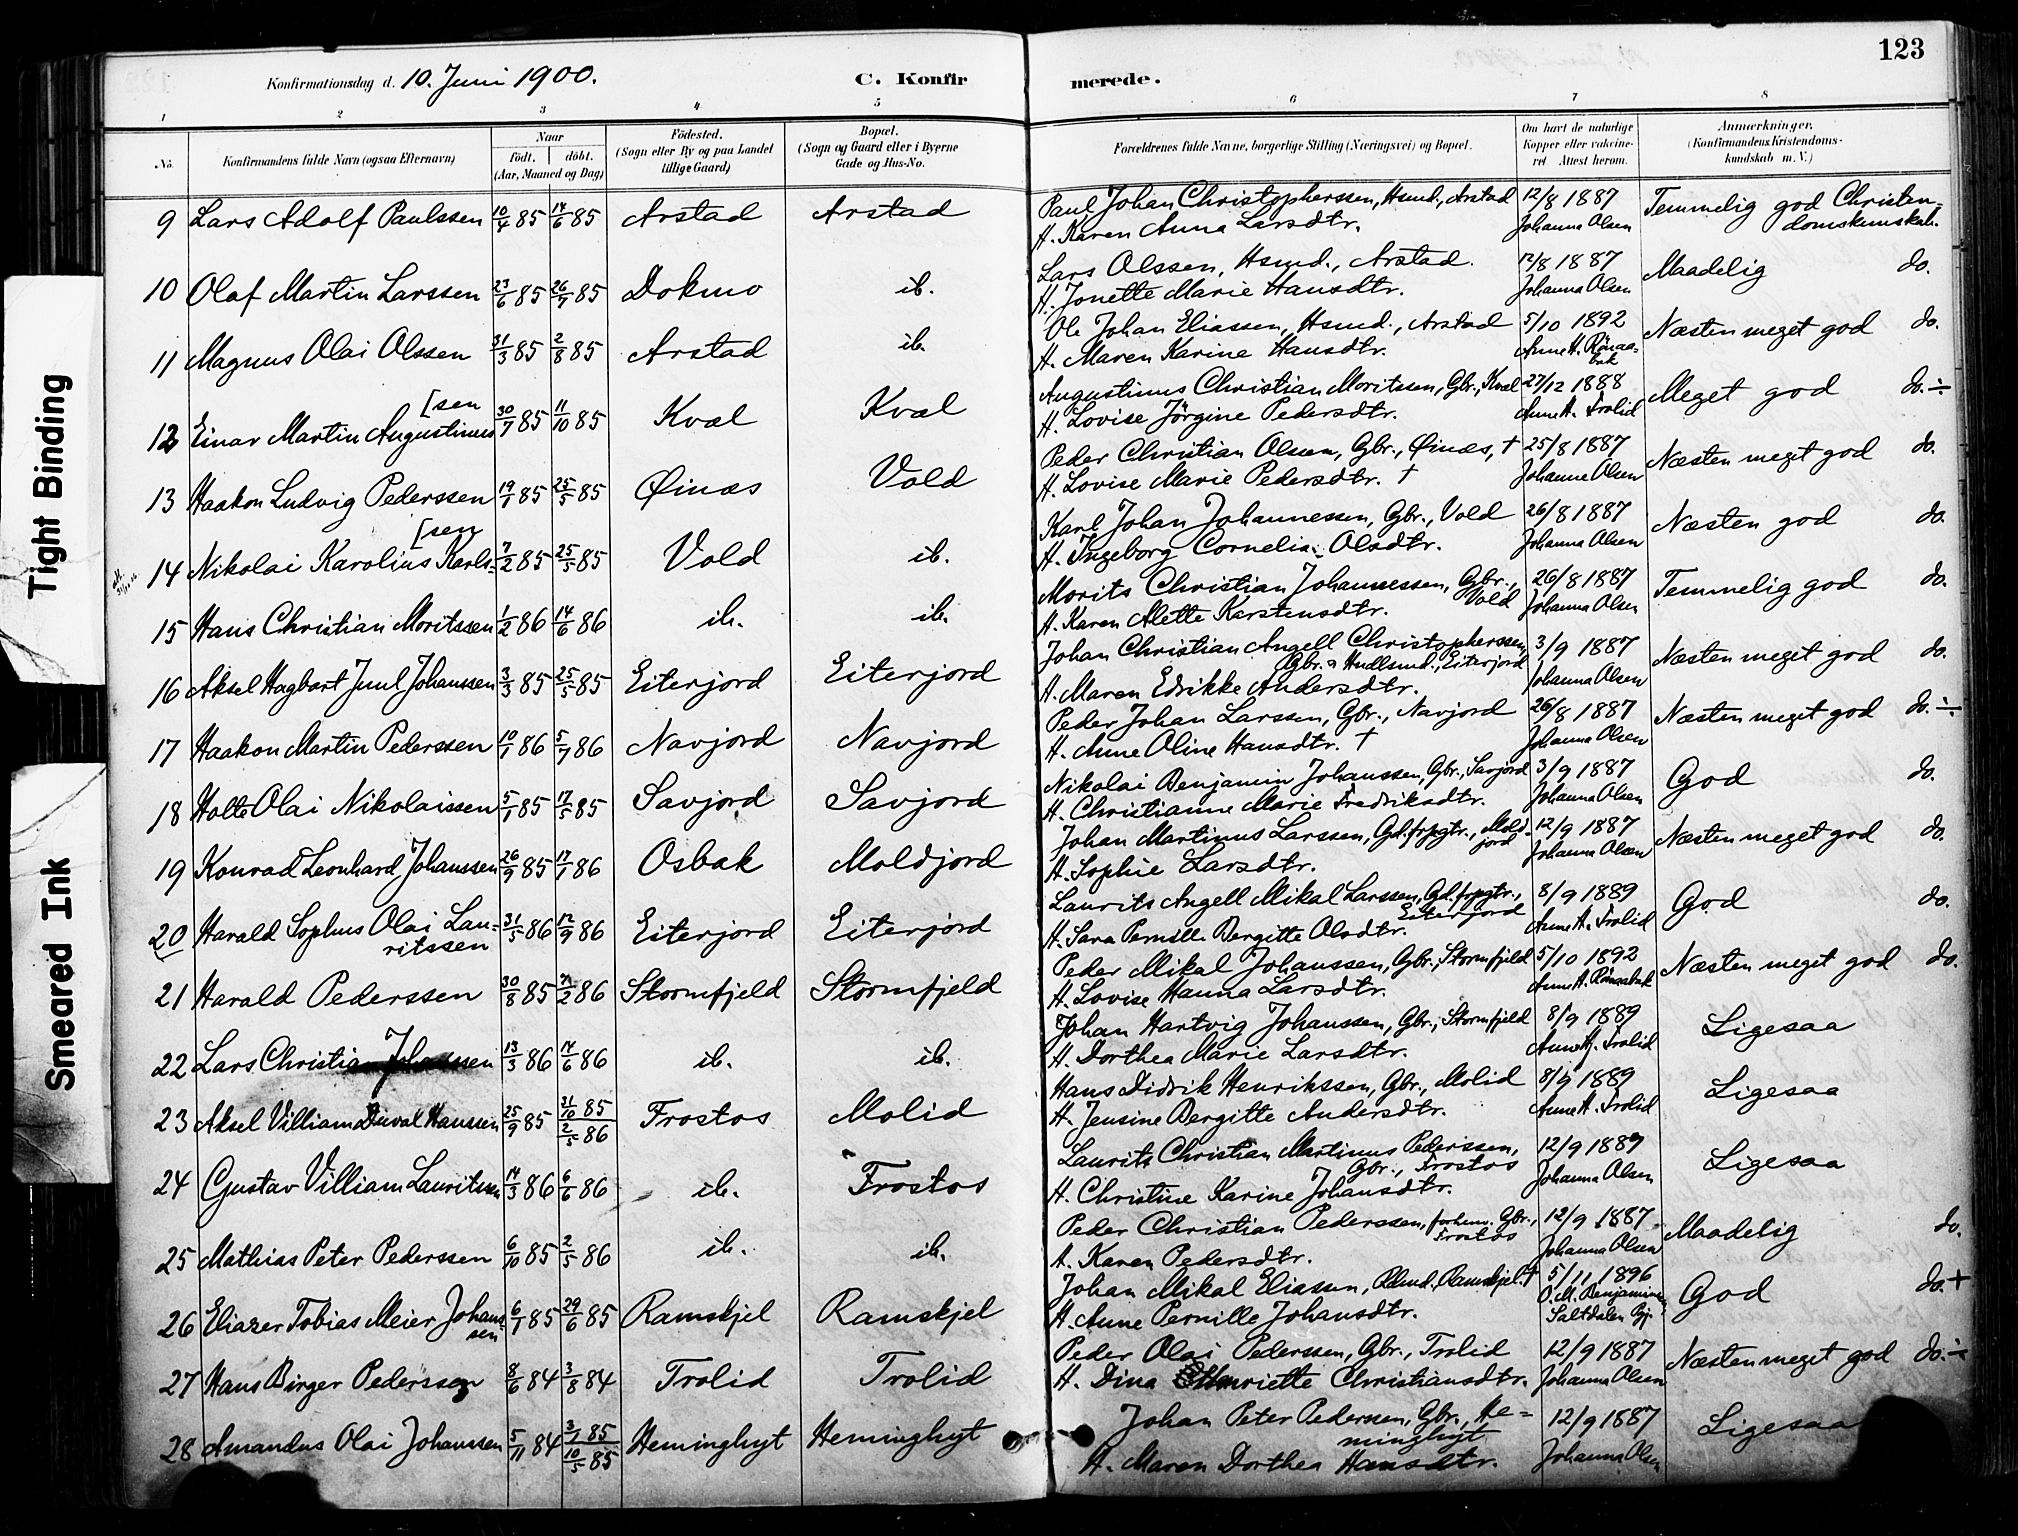 123
Konfirmationsdag d. 10. Juni 1900. C. Konfirmerede.
1 2 3 4 5 6 7 8
No. Konfirmandens fulde Navn (ogsaa Efternavn) Naar födt. döbt. (Aar, Maaned og Dag) Födested. (Sogn eller By og paa Landet tillige Gaard) Bopæl. (Sogn og Gaard eller i Byerne Gade og Hus-No. Forældrenes fulde Navne, borgerlige Stilling (Næringsvei) og Bopæl. Om havt de naturlige Kopper eller vaccineret Attest herom. Anmærkninger. (Konfirmandens Kristendomskundskab m. V.)
9 Lars Adolf Paulssen 10/4 85 14/6 85 Arstad Arstad Paul Johan Christopherssen, Hsmd., Arstad 12/8 1887 Temmelig god Christen-
H. Karen Anna Larsdtr. Johanna Olsen domskundskab.
10 Olaf Martin Larssen 23/6 85 26/7 85 Dokmo ib. Lars Olssen, Hsmd., Arstad. 12/8 1887 Maadelig do.
H. Jonette Marie Hansdtr. Johanna Olsen
11 Magnus Olai Olssen 31/3 85 2/8 85 Arstad ib. Ole Johan Eliassen, Hsmd., Arstad 5/10 1892 Næsten meget god do.
H. Maren Karine Hansdtr. Anne H. Rönaabak
12 Einar Martin Augustinus[sen 30/7 85 11/10 85 Kvæl Kvæl Augustinus Christian Moritssen, Gbr., Kvæl 27/12 1888 Meget god do. ÷
H. Lovise Jörgine Pedersdtr. Anne H. Trolid
13 Haakon Ludvig Pederssen 19/1 85 25/5 85 Øinæs Vold Peder Christian Olsen, Gbr., Øinæs, † 25/8 1887 Næsten meget god do.
H. Lovise Marie Pedersdtr. † Johanne Olsen
14 Nikolai Karolius Karls-[sen 7/2 85 25/5 85 Vold ib. Karl Johan Johannessen, Gbr., Vold 26/8 1887 Næsten god do.
H. Ingeborg Cornelia Olsdtr. Johanna Olsen
15 Hans Christian Moritssen 1/2 86 14/6 86 ib. ib. Morits Christian Johannessen, Gbr., Vold 26/8 1887 Temmelig god do.
H. Karen Alette Karstensdtr. Johanna Olsen
16 Aksel Hagbart Juul Johanssen 3/3 85 25/5 85 Eiterjord Eiterjord Johan Christian Angell Christopherssen, 3/9 1887 Næsten meget god do.
Gbr. & Hndlsmd., Eiterjord
H. Maren Edrikke Andersdtr. Johanna Olsen
17 Haakon Martin Pederssen 10/1 86 5/7 86 Navjord Navjord Peder Johan Larssen, Gbr., Navjord 26/8 1887 Næsten meget god do. ÷
H. Anne Oline Hansdtr. † Johanna Olsen
18 Holte Olai Nikolaissen 5/1 85 17/5 85 Savjord Savjord Nikolai Benjamin Johanssen, Gbr., Savjord 3/9 1887 God do.
H. Christianne Marie Fredriksdtr. Johanna Olsen
19 Konrad Leonhard Johanssen 26/9 85 17/1 86 Osbak Moldjord Johan Martinus Larssen, Gd.frpgtr., Moldjord 12/9 1887 Næsten meget god do.
H. Sophie Larsdtr. Johanna Olsen
20 Harald Sophus Olai Lau- 31/5 86 12/9 86 Eiterjord Eiterjord Laurits Angell Mikal Larssen, Gd.frpgtr., Eiterjord 8/9 1889 God do.
ritssen H. Sara Pernille Bergitte Olsdtr. Anne H. Trolid
21 Harald Pederssen 30/8 85 /2 86 Stormfjeld Stormfjeld Peder Mikal Johanssen, Gbr., Stormfjeld 5/10 1892 Næsten meget god do.
H. Lovise Hanna Larsdtr. Anne H. Rönaabak
22 Lars Christian Johanssen 13/3 86 14/6 86 ib. ib. Johan Hartvig Johanssen, Gbr., Stormfjeld 8/9 1889 Ligesaa
H. Dorthea Marie Larsdtr. Anne H. Trolid
23 Aksel Villiam Duval Hanssen 25/9 85 31/10 85 2/5 86 Frostos Molid Hans Didrik Henrikssen, Gbr., Molid 8/9 1889 Ligesaa
H. Jensine Bergitte Andersdtr. Anne H. Trolid
24 Gustav Villiam Lauritssen 14/3 86 6/6 86 ib. Frostos Laurits Christian Martinus Pederssen, 12/9 1889 Ligesaa
Gbr., Frostos
H. Christine Karine Johansdtr. Johanna Olsen
25 Mathias Peter Pederssen 6/10 85 2/5 86 ib. ib. Peder Christian Pederssen, forhenv. Gbr., Frostos 12/9 1887 Maadelig do.
H. Karen Pedersdtr. Johanna Olsen
26 Eliazer Tobias Meier Johans- 6/1 85 29/6 85 Ramskjel Ramskjel Johan Mikal Eliassen, Ramskjel. † 5/11 1896 God do. +
sen H. Anne Pernille Johansdtr. O. M. Benjaminsen Saltdalen
27 Hans Birger Pederssen 8/6 84 3/8 84 Trolid Trolid Peder Olai Pederssen, Gbr., Trolid 12/9 1887 Næsten meget god do. ÷
H. Dina Henriette Christiansdtr. Johanna Olsen
28 Amandus Olai Johanssen 5/11 84 3/1 85 10/5 85 Heminghyt Heminghyt Johan Peter Pederssen, Gbr., He- 12/9 1887 Ligesaa
minghyt
H. Maren Dorthea Hansdtr. Johanna Olsen
Tight Binding
Smeared Ink